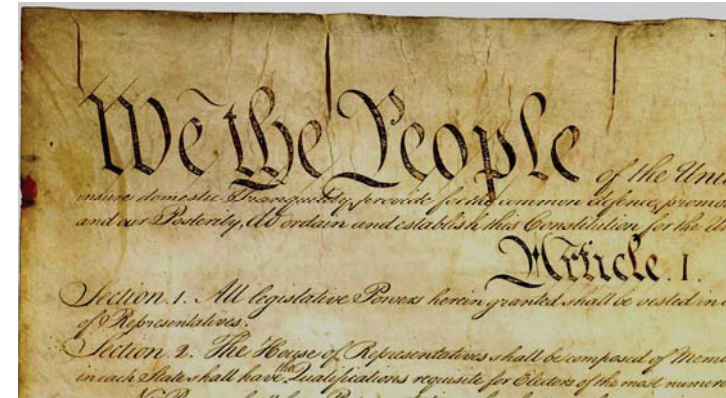 We the People of the Uni
insure domestic Tranquility, provide for the common defence, promo
and our Posterity, do ordain and establish this Constitution for the Un
Article. I.
Section. 1. All legislative Powers herein granted shall be vested in
of Representatives.
Section. 2. The House of Representatives shall be composed of Mem
the
in each State shall have Qualifications requisite for Electors of the most numero